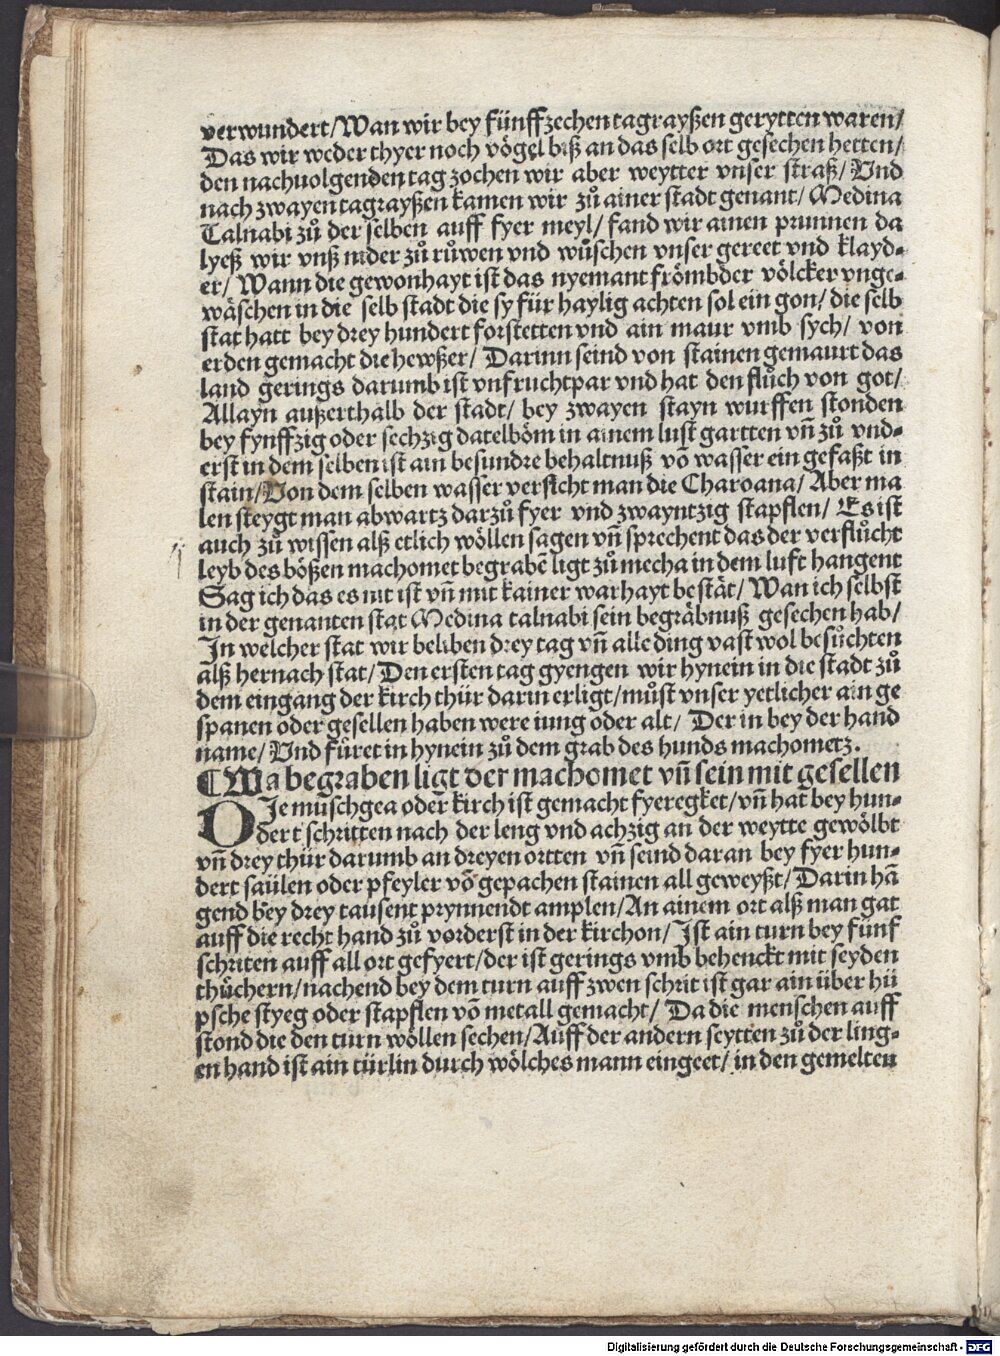 verwundert/Wan wir bey fünffzechen tagrayßen gerytten waren/
Das wir weder thyer noch vögel biß an das selb ort gesechen hetten/
den nachuolgenden tag zochen wir aber weytter vnser straß/ Vnd
nach zwayen tagrayßen kamen wir zů ainer stadt genant/ Medina
Talnabi zů der selben auff fyer meyl/ fand wir ainen prunnen da
lyeß wir vnß nider zů růwen vnd wůschen vnser gereet vnd klayd⸗
er/ Wann die gewonhayt ist das nyemant frömbder völcker vnge⸗
wäschen in die selb stadt die sy für haylig achten sol ein gon/ die selb
stat hatt bey drey hundert forstetten vnd ain maur vmb sych/ von
erden gemacht die hewßer/ Darinn seind von stainen gemaurt das
land gerings darumb ist vnfruchtpar vnd hat den flůch von got/
Allayn außerthalb der stadt/ bey zwayen stayn wurffen stonden
bey fynffzig oder sechzig datelböm in ainem lust gartten vñ zů vnd⸗
erst in dem selben ist ain besundre behaltnuß võ wasser ein gefaßt in
stain/Von dem selben wasser versicht man die Charoana/ Aber ma
len steygt man abwartz darzů fyer vnd zwayntzig stapflen/ Es ist
auch zů wissen alß etlich wöllen sagen vñ sprechent das der verflůcht
leyb des bößen machomet begrabẽ ligt zů mecha in dem luft hangent
Sag ich das es nit ist vñ mit kainer warhayt bestät/ Wan ich selbst
in der genanten stat Medina talnabi sein begräbnuß gesechen hab/
In welcher stat wir beliben drey tag vñ alle ding vast wol besůchten
alß hernach stat/ Den ersten tag gyengen wir hynein in die stadt zů
dem eingang der kirch thür darin er ligt/ můst vnser yetlicher ain ge
spanen oder gesellen haben were iung oder alt/ Der in bey der hand
name/ Vnd füret in hynein zů dem grab des hunds machometz.
¶ Wa begraben ligt der machomet vñ sein mit gesellen
DIe müschgea oder kirch ist gemacht fyeregket/ vñ hat bey hun⸗
dert schritten nach der leng vnd achzig an der weytte gewölbt
vñ drey thür darumb an dreyen ortten vñ seind daran bey fyer hun⸗
dert saülen oder pfeyler võ gepachen stainen all geweyßt/ Darin hã
gend bey drey tausent prynnendt amplen/ An ainem ort alß man gat
auff die recht hand zů vorderst in der kirchon/ Ist ain turn bey fünf
schriten auff all ort gefyert/ der ist gerings vmb behenckt mit seyden
thůchern/ nachend bey dem turn auff zwen schrit ist gar ain über hü
psche styeg oder stapflen võ metall gemacht/ Da die menschen auff
stond die den turn wöllen sechen/ Auff der andern seytten zů der ling⸗
en hand ist ain türlin durch wölches mann eingeet/ in den gemelten
Digitalisierung gefördert durch die Deutsche Forschungsgemeinschaft - DFG